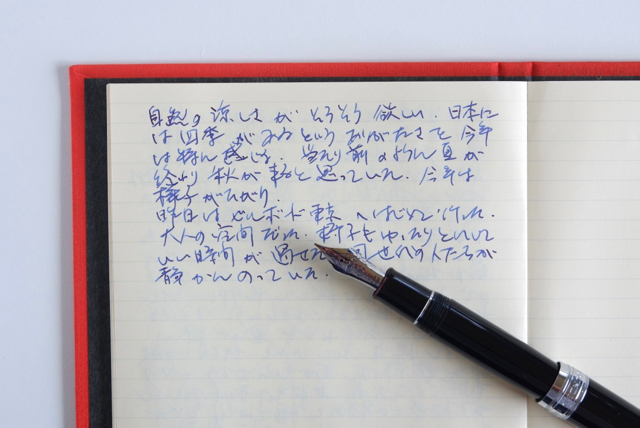 自然の涼しさが そろそろ 欲しい. 日本に
は四季があるという ありがたさを 今年
は特に感じる. 当たり前のように夏が
終わり 秋が来ると思っていた. 今年は
様子がちがう.
昨日はビルボード東京 へはじめて行った.
大人の空間だった. 椅子もゆったりとしていて
いい時間が過せた 同世代の人たちが
静かに のっていた.